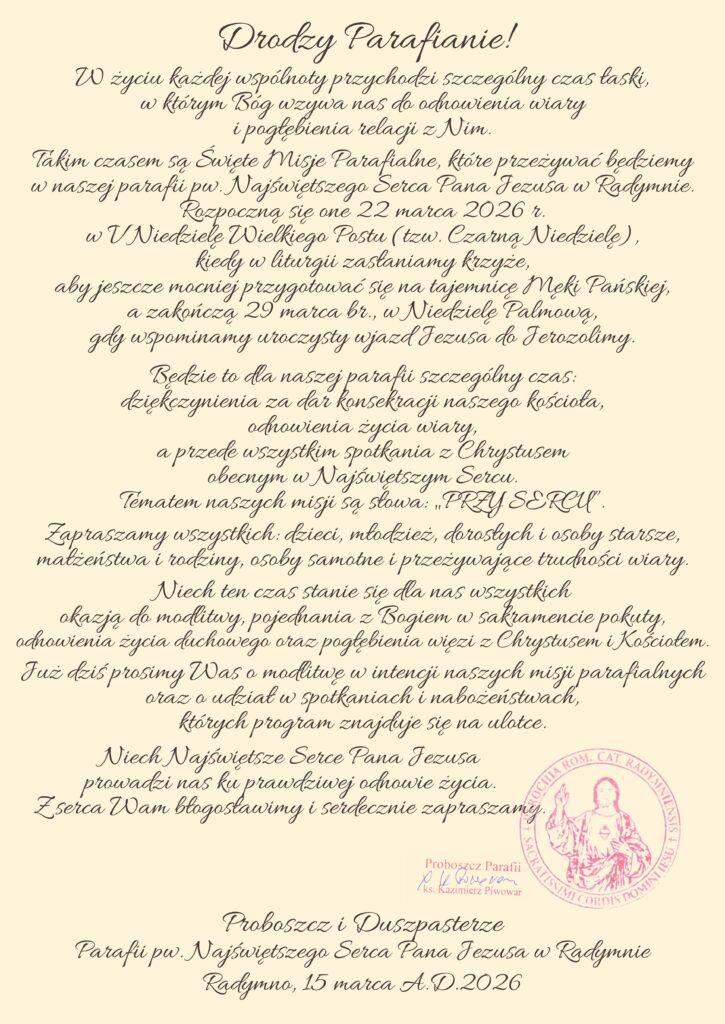 Drodzy Parafianie!
W życiu każdej wspólnoty przychodzi szczególny czas łaski,
w którym Bóg wzywa nas do odnowienia wiary
i pogłębienia relacji z Nim.
Takim czasem są Święte Misje Parafialne, które przeżywać będziemy
w naszej parafii pw. Najświętszego Serca Pana Jezusa w Radymnie.
Rozpoczną się one 22 marca 2026 r.
w V Niedzielę Wielkiego Postu (tzw. Czarną Niedzielę),
kiedy w liturgii zasłaniamy krzyże,
aby jeszcze mocniej przygotować się na tajemnicę Męki Pańskiej,
a zakończą 29 marca br., w Niedzielę Palmową,
gdy wspominamy uroczysty wjazd Jezusa do Jerozolimy.
Będzie to dla naszej parafii szczególny czas:
dziękczynienia za dar konsekracji naszego kościoła,
odnowienia życia wiary,
a przede wszystkim spotkania z Chrystusem
obecnym w Najświętszym Sercu.
Tematem naszych misji są słowa: „PRZY SERCU”.
Zapraszamy wszystkich: dzieci, młodzież, dorosłych i osoby starsze,
małżeństwa i rodziny, osoby samotne i przeżywające trudności wiary.
Niech ten czas stanie się dla nas wszystkich
okazją do modlitwy, pojednania z Bogiem w sakramencie pokuty,
odnowienia życia duchowego oraz pogłębienia więzi z Chrystusem i Kościołem.
Już dziś prosimy Was o modlitwę w intencji naszych misji parafialnych
oraz o udział w spotkaniach i nabożeństwach,
których program znajduje się na ulotce.
Niech Najświętsze Serce Pana Jezusa
prowadzi nas ku prawdziwej odnowie życia.
Z serca Wam błogosławimy i serdecznie zapraszamy.
PAROCHIA ROM. CAT. RADYMNIENSIS
SACRATISSIMI CORDIS DOMINI IESU
Proboszcz Parafii
ks. Kazimierz Piwowar
Proboszcz i Duszpasterze
Parafii pw. Najświętszego Serca Pana Jezusa w Radymnie
Radymno, 15 marca A.D.2026